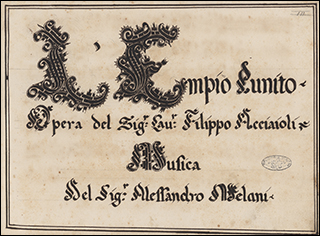 L'Empio Punito.
Opera del Sig.r Cau.r Filippo Acciaioli
Musica
Del Sig.r Alessandro Melani.